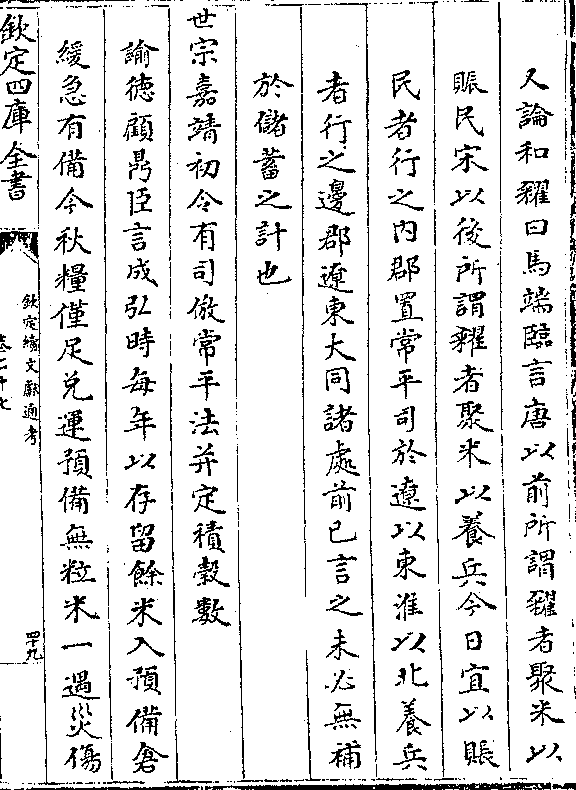 又論和糴曰馬端臨言唐以前所謂糴者聚米以
賑民宋以後所謂糴者聚米以養兵今日宜以賑
民者行之内郡置常平司於遼以東淮以北養兵
者行之邊郡遼東大同諸處前已言之未必無補
於儲蓄之計也
世宗嘉靖初令有司倣常平法并定積穀數
諭德顧鼎臣言成弘時每年以存留餘米入預備倉
緩急有備今秋糧僅足兌運預備無粒米一遇災傷
欽定四庫全書
欽定續文獻通考
卷二十七
四十九